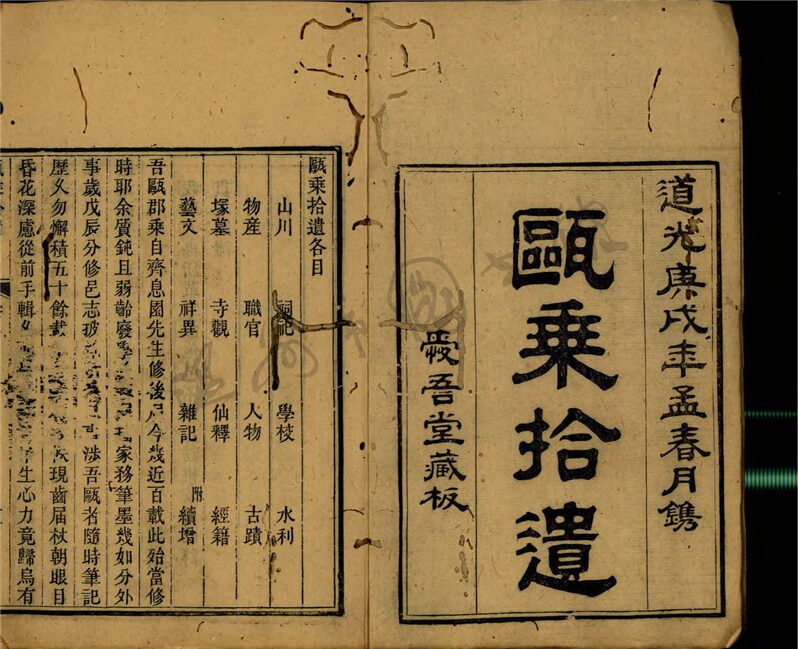 道光庚戌年孟春月鐫
甌乘拾遺
愛吾堂藏板
甌乘拾遺各目
山川 祠祀 學校 水利
物産 職官 人物 古蹟
塚墓 寺觀 仙釋 經籍
藝文 祥異 雜記 附續增
吾甌郡乘自齊息園先生修後迄今幾近百載此殆當修
時耶余質鈍且弱齡廢學 家務筆墨幾如分外
事歲戊辰分修邑志披 涉吾甌者隨時筆記
歷久勿懈積五十餘載 現齒屆杖朝眼目
昏花深慮從前手輯 生心力竟歸烏有